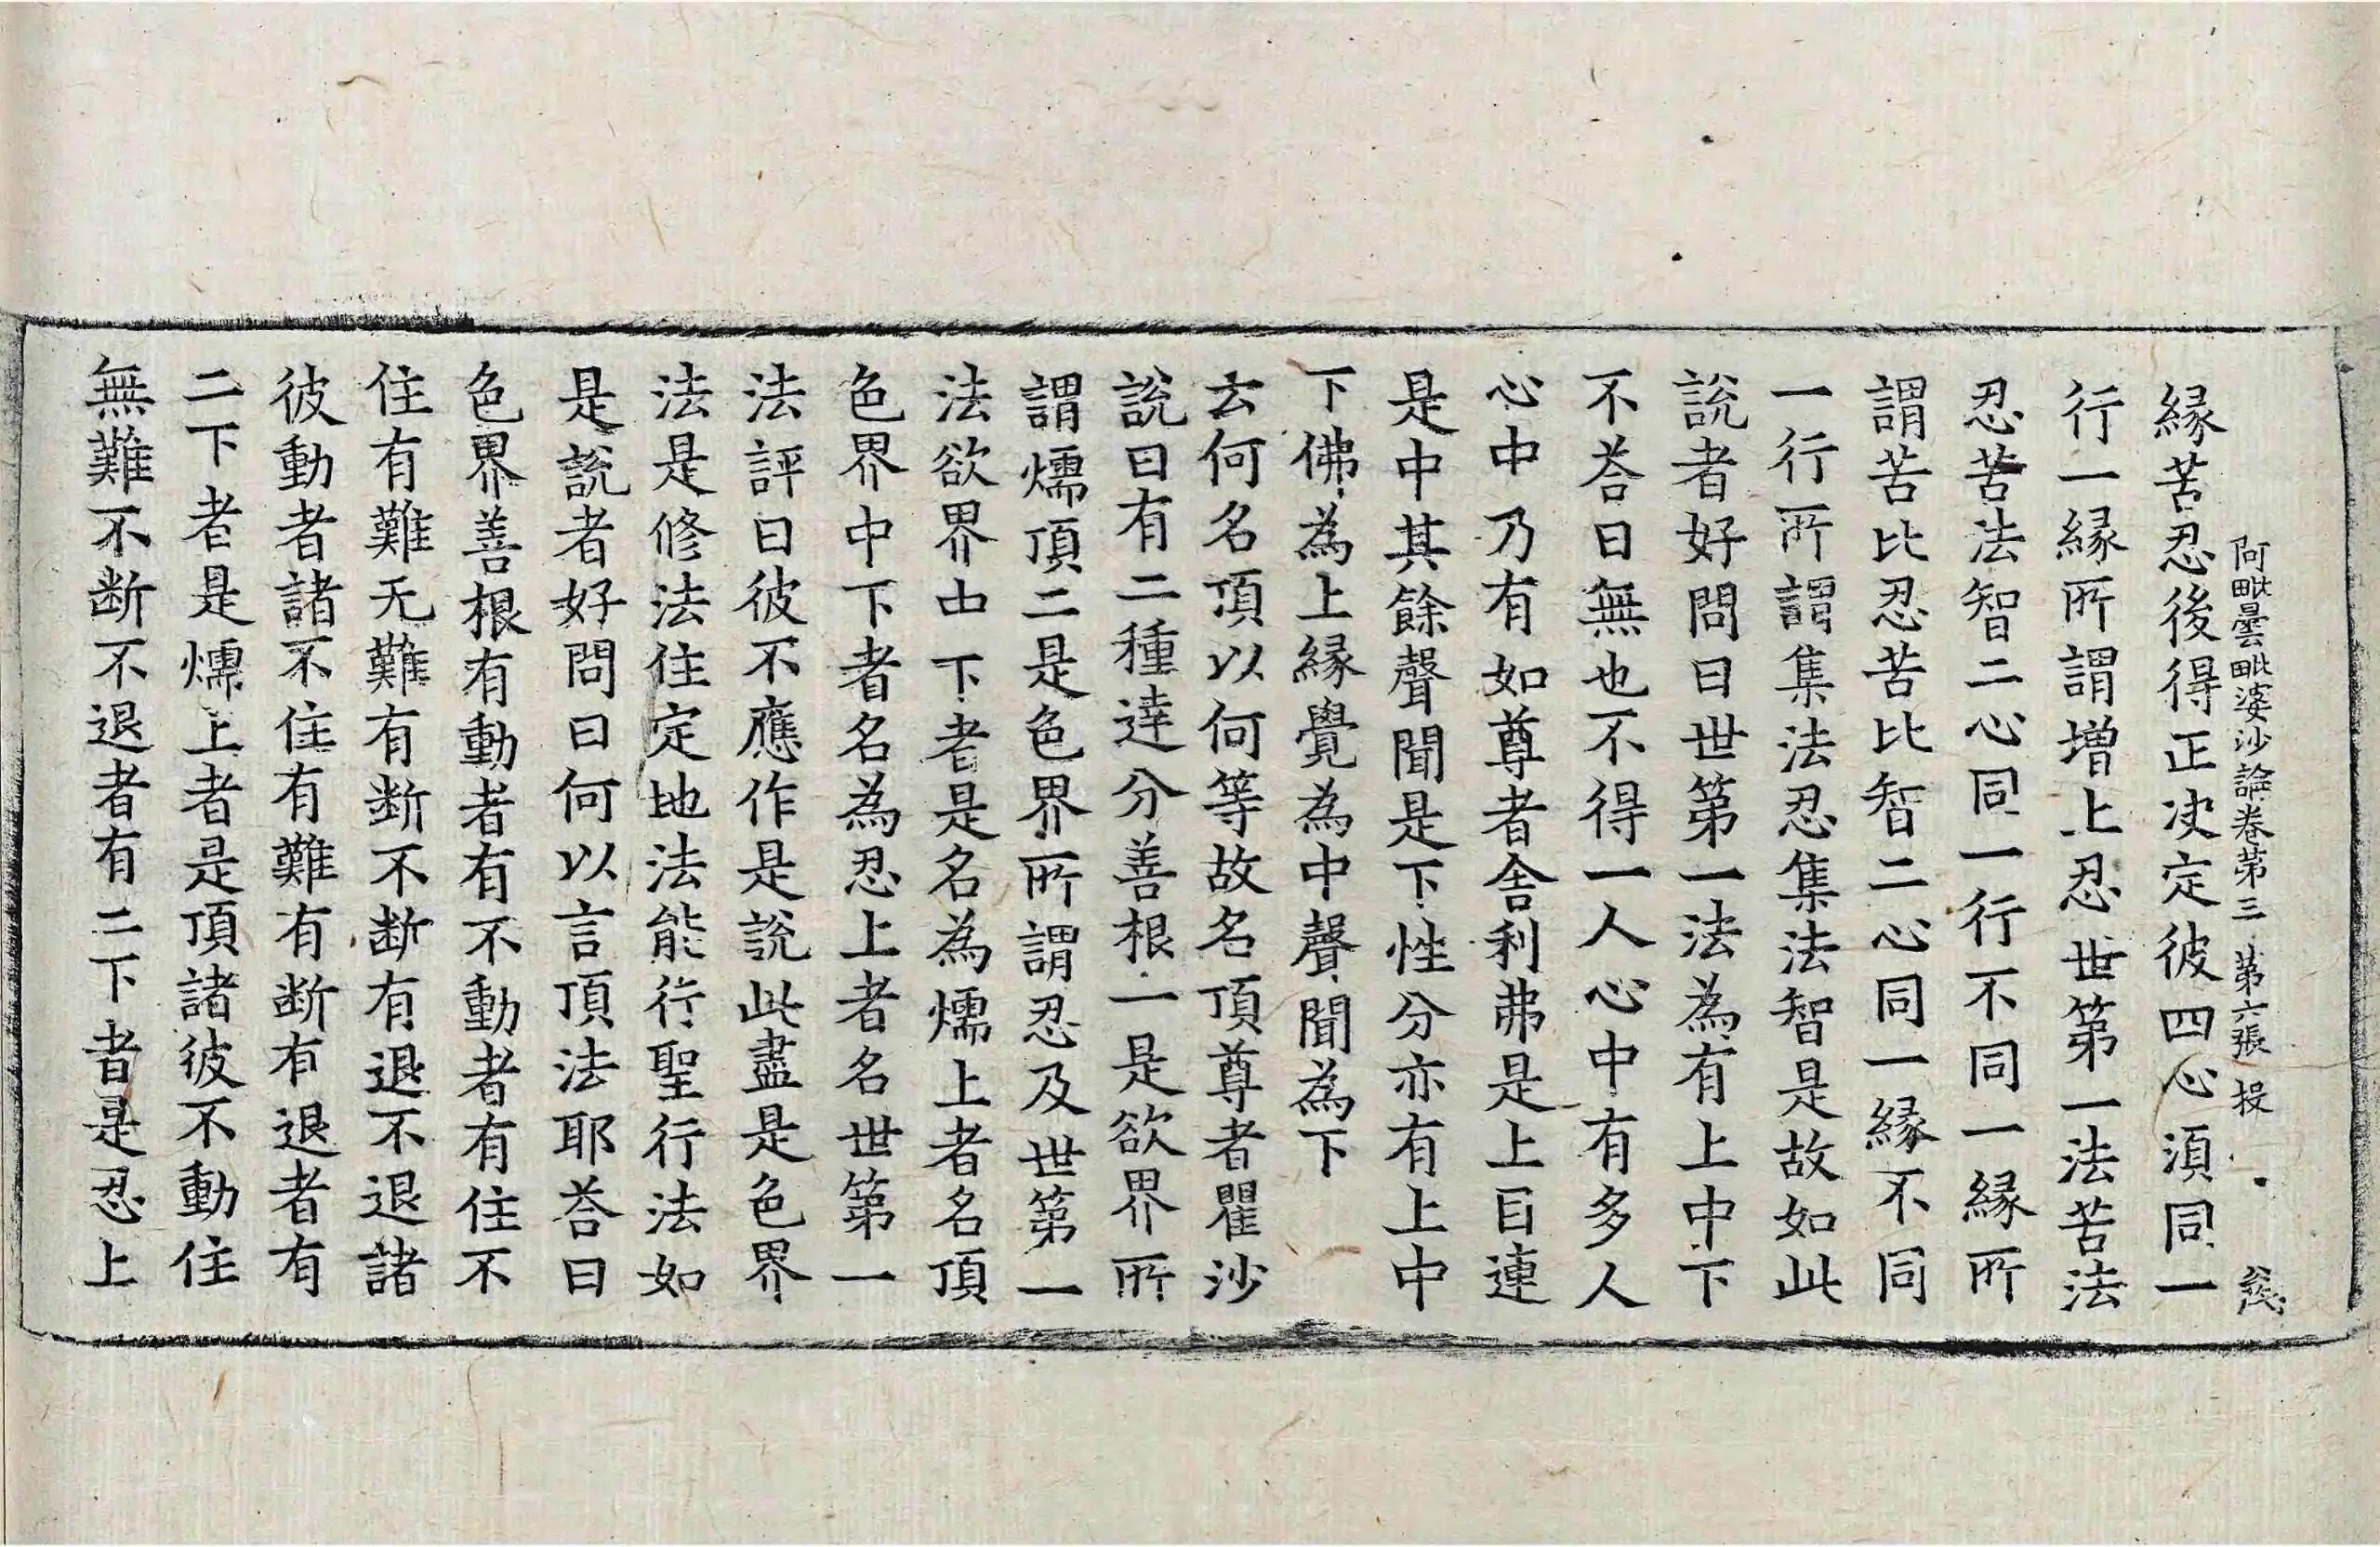 阿毗曇毗婆沙論卷第三 第六張 投
縁苦忍後得正决定彼四心湏同一
行一縁所謂増上忍世第一法苦法
忍苦法智二心同一行不同一縁所
謂苦比忍苦比智二心同一縁不同
一行所謂集法忍集法智是故如此
說者好問曰世第一法為有上中下
不荅曰無也不得一人心中有多人
心中乃有如尊者舎利弗是上目連
是中其餘聲聞是下性分亦有上中
下佛為上縁覺為中聲聞為下
云何名頂以何等故名頂尊者瞿沙
說曰有二種達分善根一是欲界所
謂燸頂二是色界所謂忍及世第一
法欲界中下者是名為燸上者名頂
色界中下者名為忍上者名世第一
法評曰彼不應作是說此盡是色界
法是修法住定地法能行聖行法如
是說者好問曰何以言頂法耶荅曰
色界善根有動者有不動者有住不
住有難无難有断不断有退不退諸
彼動者諸不住有難有断有退者有
二下者是燸上者是頂諸彼不動住
無難不断不退者有二下者是忍上